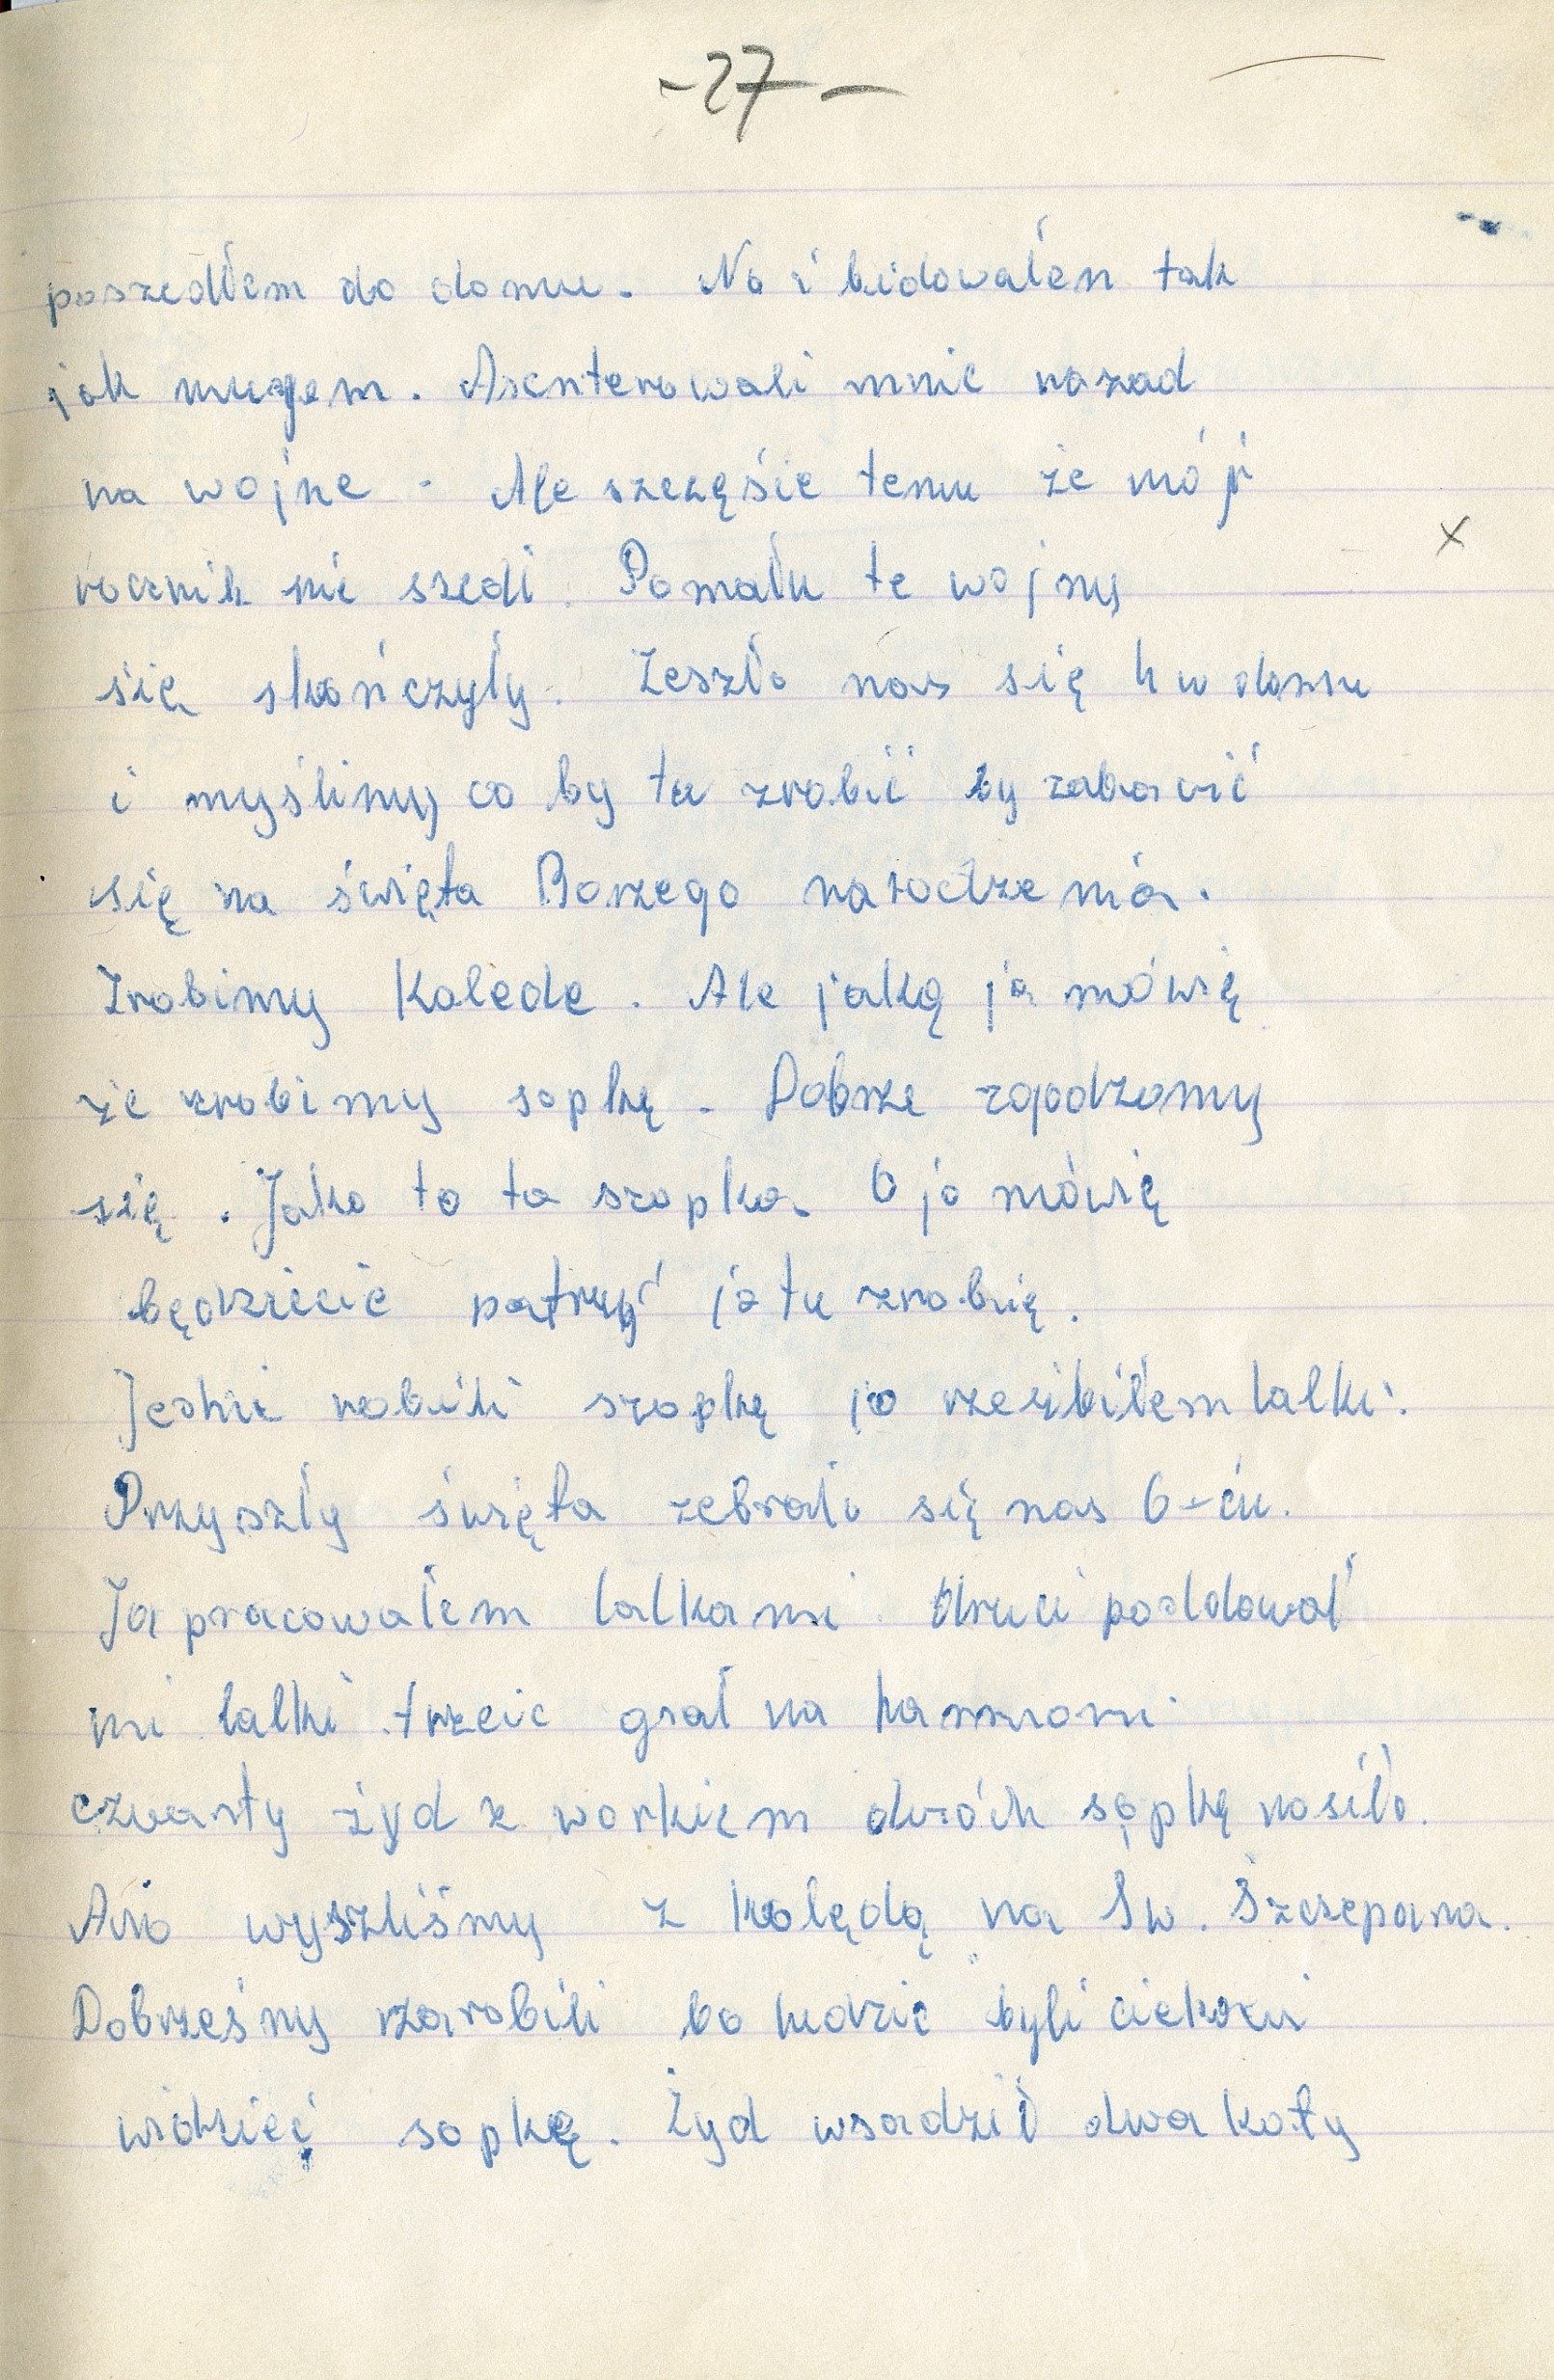 -27-
poszedłem do domu. No i bidowałen tak
jak mugem. Asenterowali mnie nazad
na wojne. Ale szczęśie temu że mój
rocznik nie szedł. Pomału te wojny
się skończyły. Zeszło nas się 4 w domu
i myślimy co by tu zrobić by zabawić
się na święta Borzego narodzenia.
Zrobimy Kolede. Ale jaką ja mówię
że zrobimy sopkę. Dobrze zgodzomy
się. Jako to ta szopka. O ja mówię
będziecie patrzyć ja tu zrobię.
Jedni robili szopkę ja rzeźbiłem lalki.
Przyszły święta zebrało się nas 6-ciu.
Ja pracowałem lalkami drugi poddował
mi lalki trzeic grał na harmoni
czwarty żyd z workiem dwóch sopkę nosiło.
Ano wyszliśmy z kolędą na Św. Szczepana.
Dobrześmy zarobili bo ludzie byli ciekawi
widzieć sopkę. Żyd wsadził dwa koty